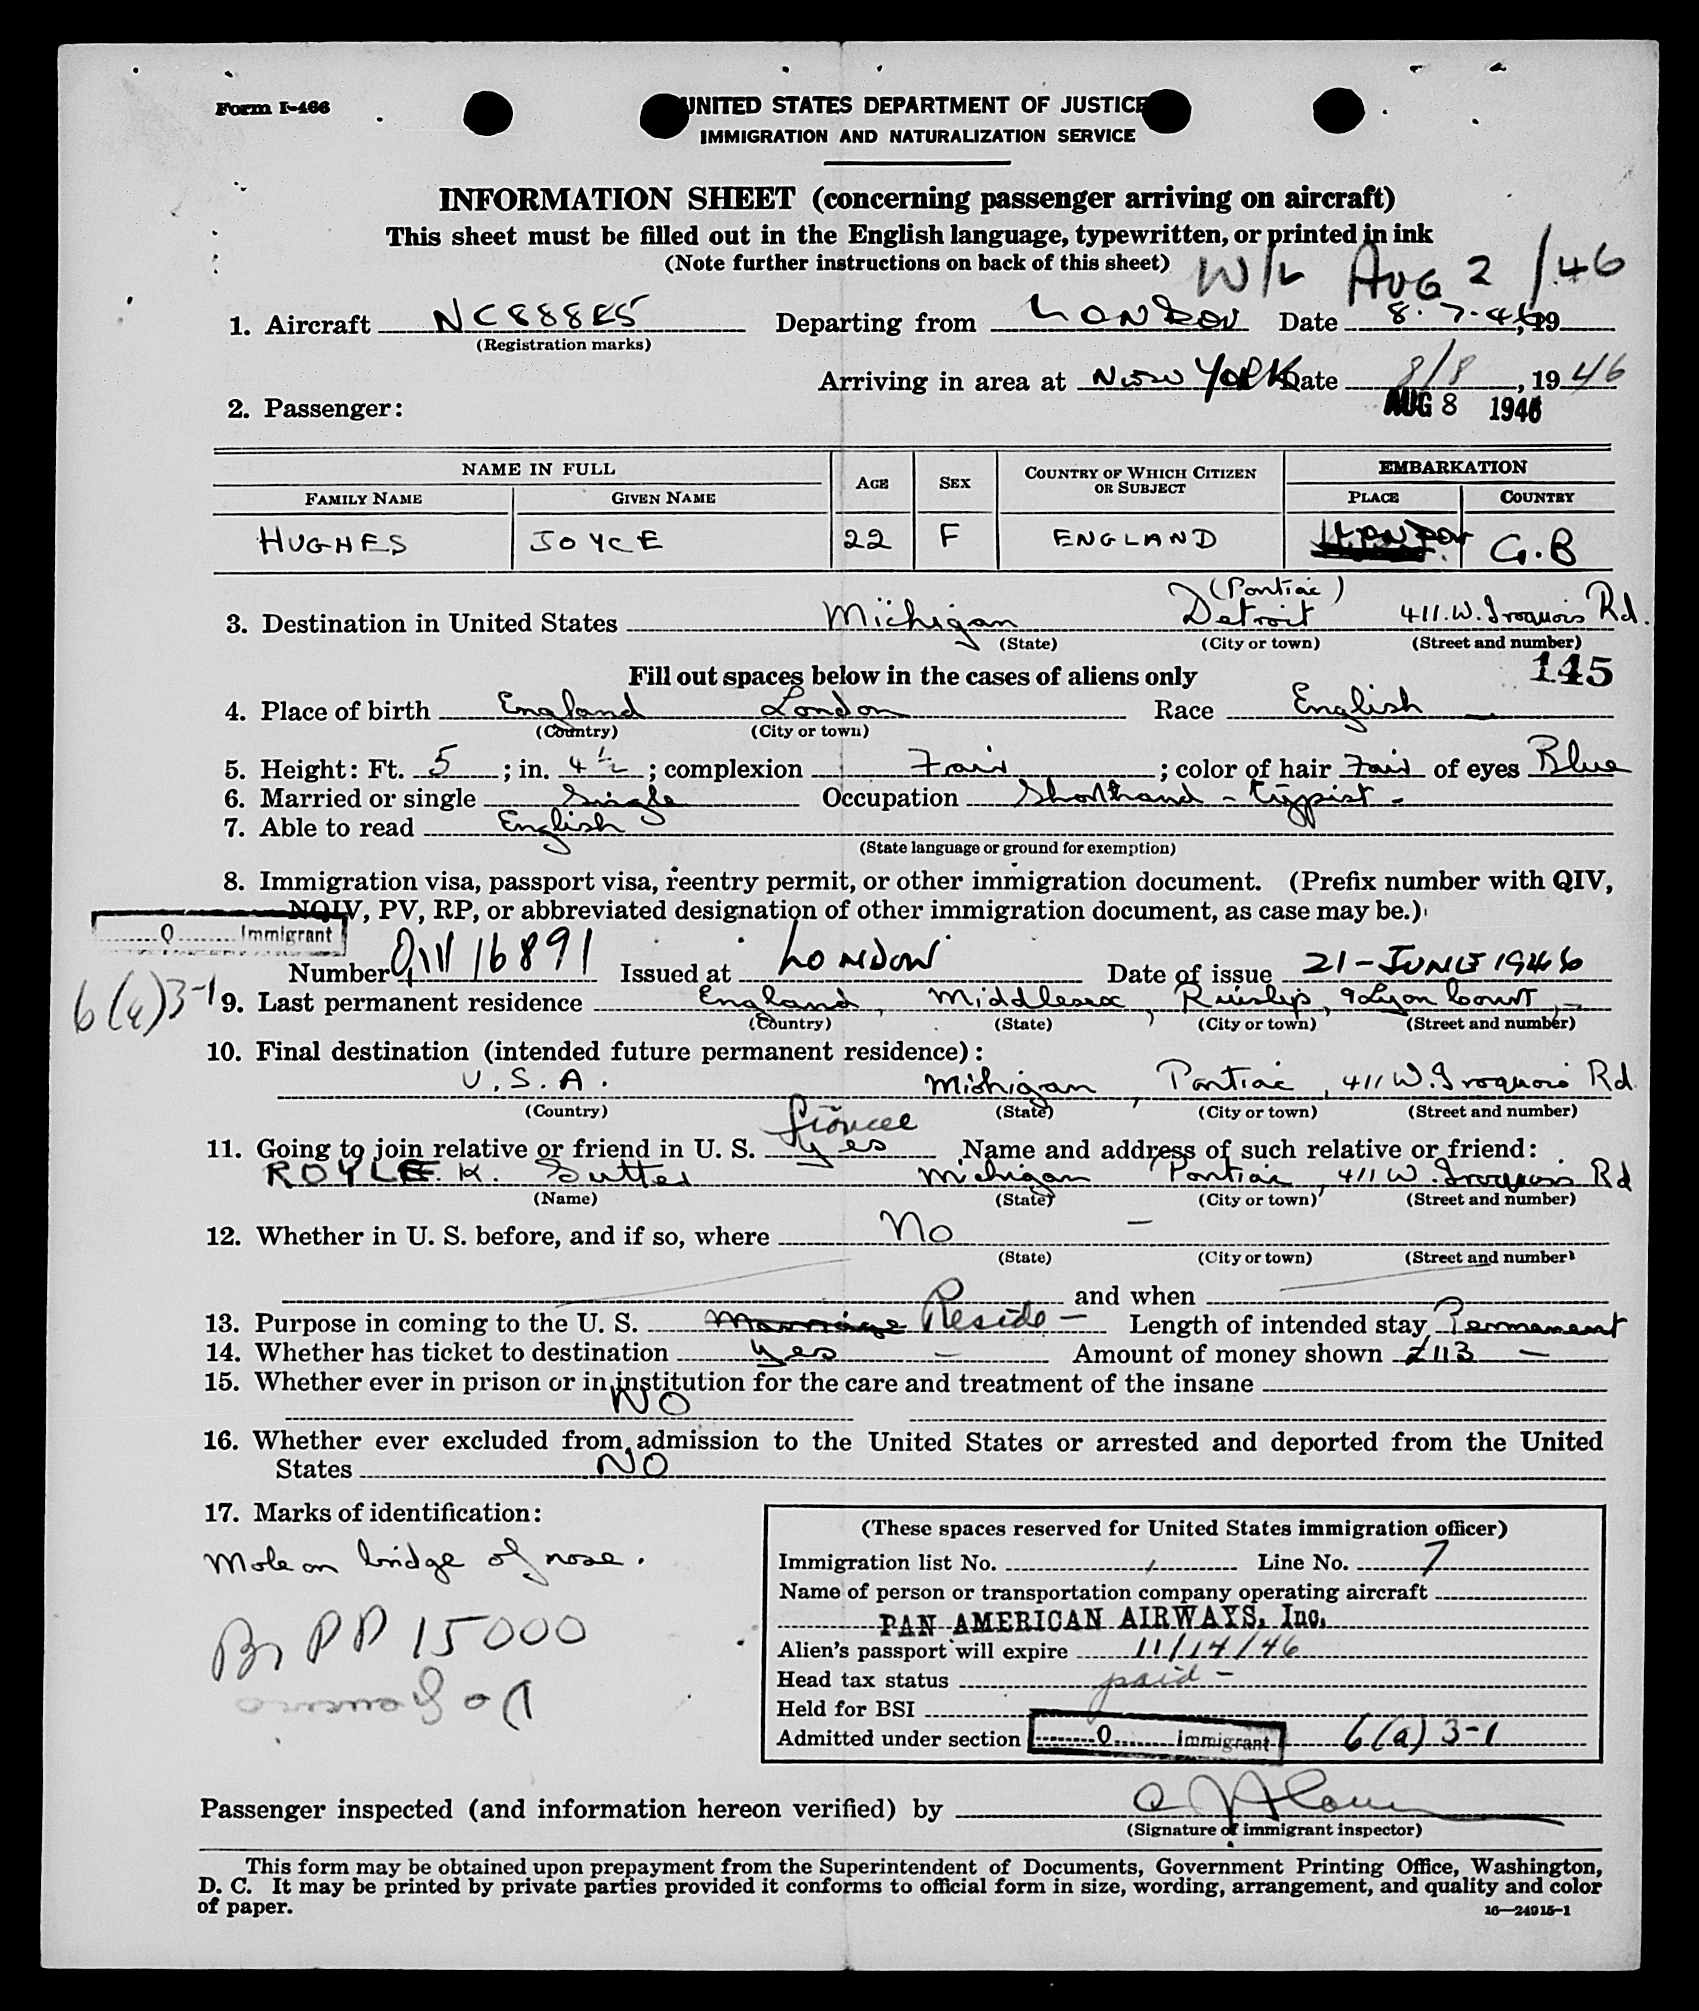 Form I-466
UNITED STATES DEPARTMENT OF JUSTICE
IMMIGRATION AND NATURALIZATION SERVICE
INFORMATION SHEET (concerning passenger arriving on aircraft)
This sheet must be filled out in the English language, typewritten, or printed in ink
(Note further instructions on back of this sheet)
W/L AUG 2 / 46
1. Aircraft NC88885 Departing from LONDON Date 8.7.46, 19
(Registration marks)
Arriving in area at NEW YORK Date 8/8, 1946
2. Passenger: AUG 8 1946
NAME IN FULL AGE SEX COUNTRY OF WHICH CITIZEN OR SUBJECT EMBARKATION
FAMILY NAME GIVEN NAME PLACE COUNTRY
HUGHES JOYCE 22 F ENGLAND LONDON G.B
(Pontiac)
3. Destination in United States Michigan Detroit 411.W.Iroquois Rd.
(State) (City or town) (Street and number)
Fill out spaces below in the cases of aliens only 145
4. Place of birth England London Race English
(Country) (City or town)
5. Height: Ft. 5; in. 4 1/2; complexion Fair; color of hair Fair of eyes Blue
6. Married or single Single Occupation Shorthand - typist -
7. Able to read English
(State language or ground for exemption)
8. Immigration visa, passport visa, reentry permit, or other immigration document. (Prefix number with QIV,
NQIV, PV, RP, or abbreviated designation of other immigration document, as case may be.)
Q Immigrant
Number QIV 16891 Issued at LONDON Date of issue 21-JUNE 1946
6(a)3-1
9. Last permanent residence England, Middlesex, Ruislip, 9 Lyon Court, -
(Country) (State) (City or town) (Street and number)
10. Final destination (intended future permanent residence):
U.S.A. Michigan, Pontiac, 411 W. Iroquois Rd.
(Country) (State) (City or town) (Street and number)
fiancee
11. Going to join relative or friend in U. S. yes Name and address of such relative or friend:
ROYLE. K. Sutter Michigan Pontiac, 411 W. Iroquois Rd
(Name) (State) (City or town) (Street and number)
12. Whether in U. S. before, and if so, where No -
(State) (City or town) (Street and number)
and when
13. Purpose in coming to the U. S. Marriage Reside - Length of intended stay Permanent
14. Whether has ticket to destination yes - Amount of money shown £113 -
15. Whether ever in prison or in institution for the care and treatment of the insane
NO
16. Whether ever excluded from admission to the United States or arrested and deported from the United
States NO
17. Marks of identification:
Mole on bridge of nose.
Br PP 15000
(These spaces reserved for United States immigration officer)
Immigration list No. Line No. 7
Name of person or transportation company operating aircraft
PAN AMERICAN AIRWAYS, Inc.
Alien's passport will expire 11/14/46
Head tax status paid -
Held for BSI
Admitted under section Q Immigrant 6(a)3-1
Passenger inspected (and information hereon verified) by
(Signature of immigrant inspector)
This form may be obtained upon prepayment from the Superintendent of Documents, Government Printing Office, Washington,
D. C. It may be printed by private parties provided it conforms to official form in size, wording, arrangement, and quality and color
of paper.
16—24915-1